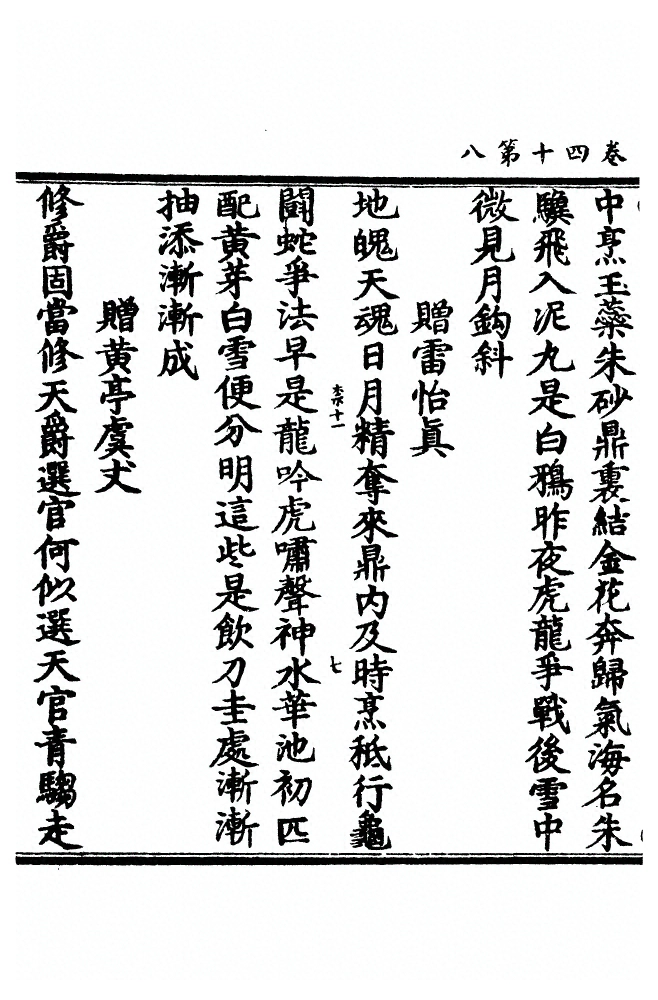 卷四十第八
中烹玉蘂朱砂鼎裏結金花奔歸氣海名朱
驥飛入泥丸是白鴉昨夜虎龍爭戰後雪中
微見月鈎斜
贈雷怡眞
地魄天魂日月精奪來鼎內及時烹秪行龜
闘蛇爭法早是龍吟虎嘯聲神水華池初匹
配黄芽白雪便分明這些是飲刀圭處漸漸
抽添漸漸成
贈黄亭虞丈
修爵固當修天爵選官何似選天官青騶走
十一
七